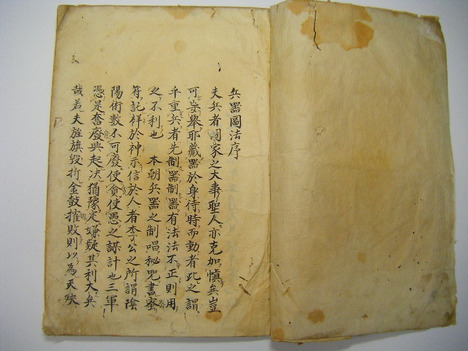 兵器圖法序
夫兵者國家之大事聖人亦克加慎兵豈
可妄舉耶藏器於身待時而動者此之謂
乎重兵者先制器制器有法法不正則用
之不利也 本朝兵器之制唱秘咒畫密
符記祥於神示信於人者李公之所謂陰
陽術數不可廢使貪使愚之謀計也三軍
憑是奮廢興起決猶豫定嫌疑其利大矣
哉若夫旌旗毀折金鼓摧敗則以為天災